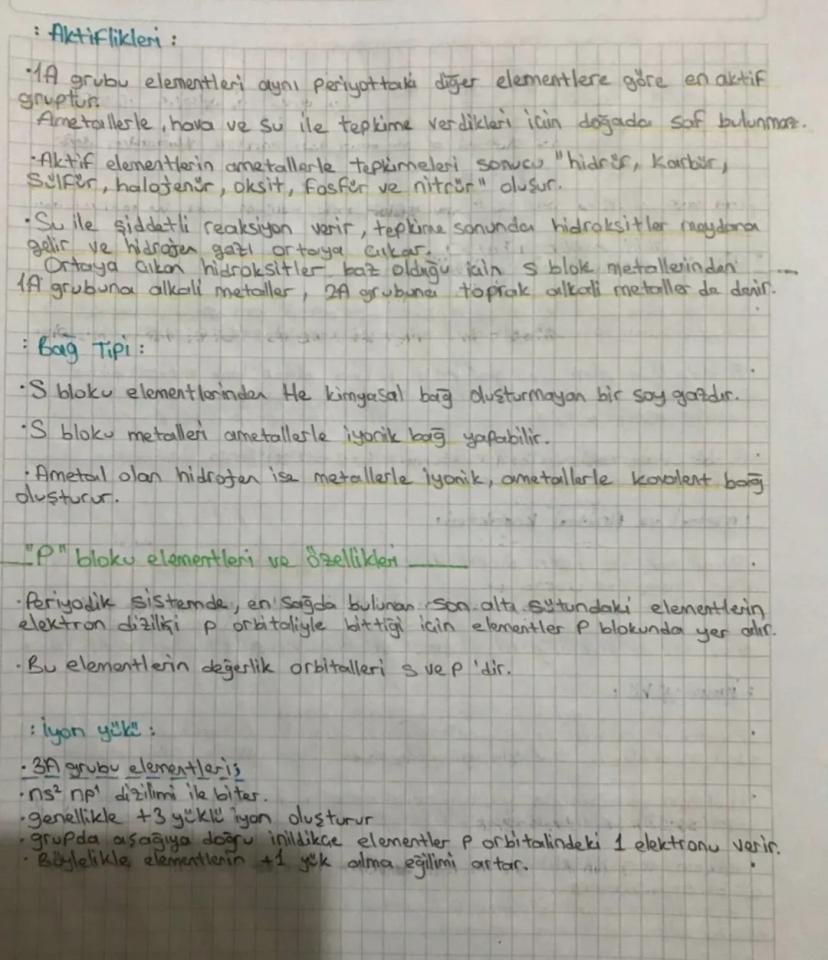 : Aktiflikleri :
·1A grubu elementleri aynı periyottaki diğer elementlere göre en aktif
gruptur.
Ametallerle, hava ve su ile tepkime verdikleri için doğada saf bulunmaz.
·Aktif elementlerin ametallerle tepkimeleri sonucu "hidrür, karbür,
sülfür, halojenür, oksit, fosfür ve nitrür" oluşur.
·Su ile şiddetli reaksiyon verir, tepkime sonunda hidroksitler meydana
gelir ve hidrojen gazı ortaya çıkar.
Ortaya çıkan hidroksitler baz olduğu için s blok metallerinden
1A grubuna alkali metaller, 2A grubuna toprak alkali metaller de denir.
: Bağ Tipi :
·S bloku elementlerinden He kimyasal bağ oluşturmayan bir soy gazdır.
·S bloku metalleri ametallerle iyonik bağ yapabilir.
·Ametal olan hidrojen ise metallerle iyonik, ametallerle kovalent bağ
oluşturur.
"P" bloku elementleri ve özellikleri
·Periyodik sistemde, en sağda bulunan son altı sütundaki elementlerin
elektron dizilişi p orbitaliyle bittiği için elementler P blokunda yer alır.
·Bu elementlerin değerlik orbitalleri s ve p 'dir.
: İyon yükü :
·3A grubu elementleri;
·ns² np¹ dizilimi ile biter.
·genellikle +3 yüklü iyon oluşturur
·grupda aşağıya doğru inildikçe elementler P orbitalindeki 1 elektronu verir.
·Böylelikle elementlerin +1 yük alma eğilimi artar.